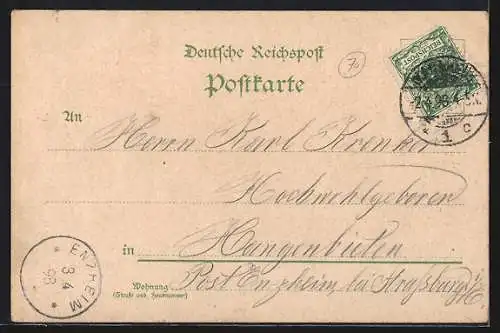 Deutsche Reichspost
Postkarte
70
REICHSPOST
2.4.98. 4-5N.
* 1 c
An
Herrn Karl Kronker
Hochwohlgeboren
in Hangenbieten
Wohnung
(Straße und Hausnummer)
Post Enzheim, bei Straßburg i/E
ENZHEIM
3 4
98